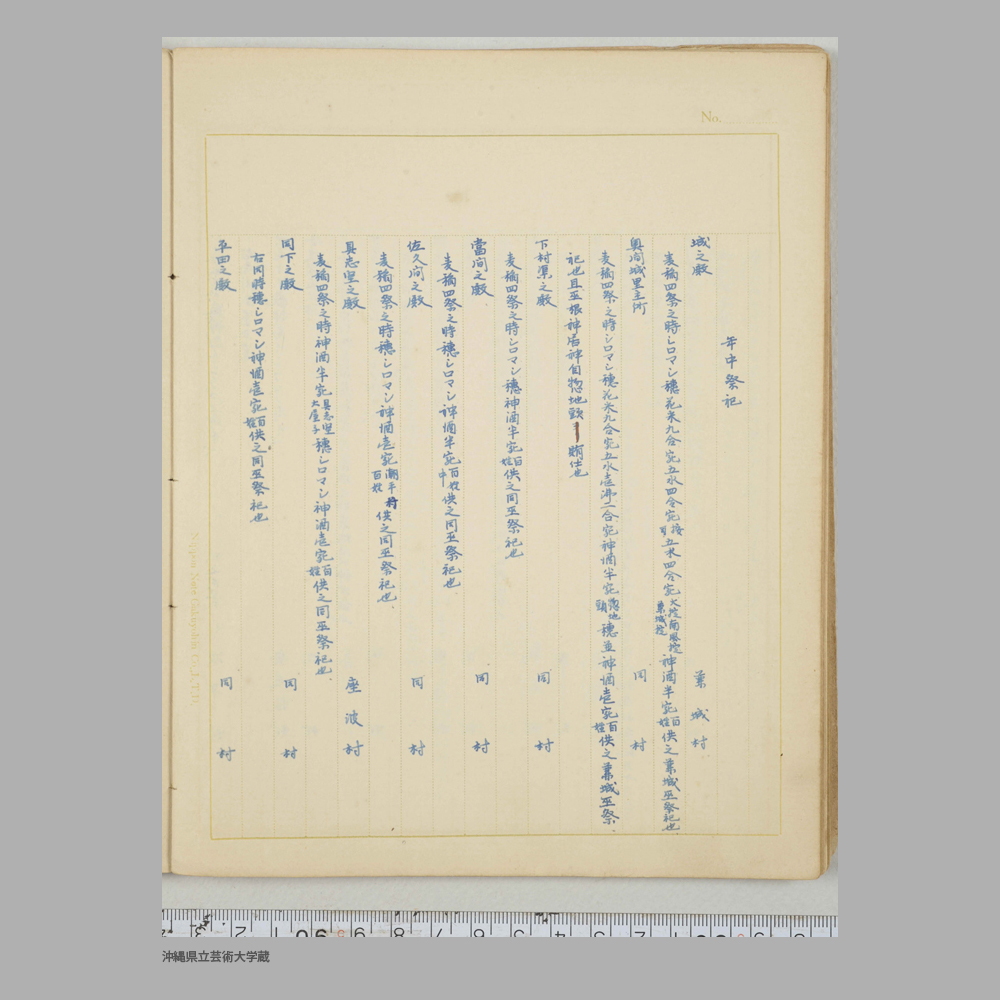 No.
年中祭祀
城之殿 兼城村
麦穂四祭之時シロマシ穂花米九合宛五水四合宛 按司 五水四合宛 大掟南風掟兼城掟 神酒半宛 百姓 供之兼城巫祭祀也
奥間城里主所 同村
麦穂四祭之時シロマシ穂花米九合宛五水壱沸二合宛神酒半宛 惣地頭 穂並神酒壱宛 百姓 供之兼城巫祭
祀也且巫根神居神自惣地頭賄仕也
下村渠之殿 同村
麦穂四祭之時シロマシ穂神酒半宛 百姓 供之同巫祭祀也
當間之殿 同村
麦穂四祭之時穂シロマシ神酒半宛 百姓中 供之同巫祭祀也
佐久間之殿 同村
麦穂四祭之時穂シロマシ神酒壱宛 潮平村百姓 供之同巫祭祀也
具志堅之殿 座波村
麦穂四祭之時神酒半宛 具志堅大屋子 穂シロマシ神酒壱宛 百姓 供之同巫祭祀也
同下之殿 同村
右同時穂シロマシ神酒壱宛 百姓 供之同巫祭祀也
平田之殿 同村
沖縄県立芸術大学蔵